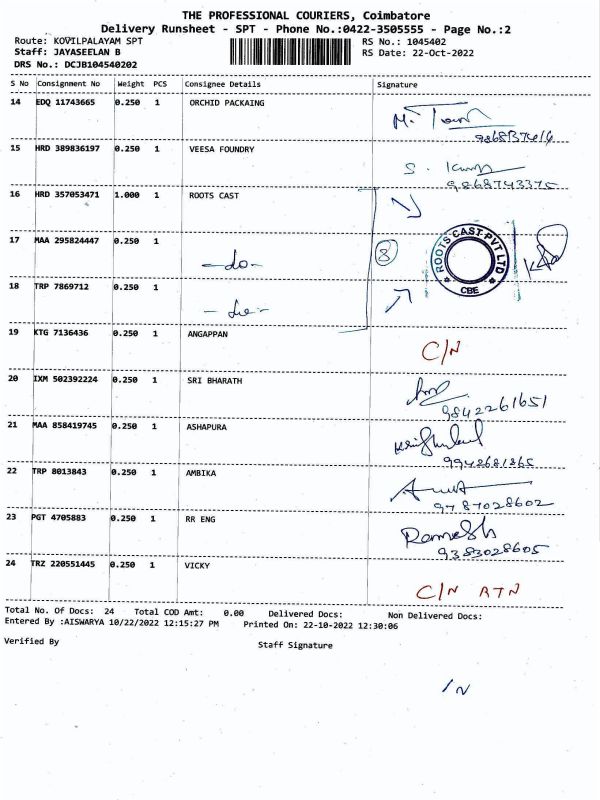 THE PROFESSIONAL COURIERS, Coimbatore
Delivery Runsheet - SPT - Phone No.:0422-3505555 - Page No.:2
Route: KOVILPALAYAM SPT
RS No.: 1045402
Staff: JAYASEELAN B
RS Date: 22-Oct-2022
DRS No.: DCJB104540202
S No Consignment No Weight PCS Consignee Details Signature
14 EDQ 11743665 0.250 1 ORCHID PACKAING
15 HRD 389836197 0.250 1 VEESA FOUNDRY
S.
9868743375
16 HRD 357053471 1.000 1 ROOTS CAST
17 MAA 295824447 0.250 1 -do-
3
ROOTS CAST PVT LTD
CBE
18 TRP 7869712 0.250 1 -do-
19 KTG 7136436 0.250 1 ANGAPPAN C/N
20 IXM 502392224 0.250 1 SRI BHARATH
9842261651
21 MAA 858419745 0.250 1 ASHAPURA
9942681865
22 TRP 8013843 0.250 1 AMBIKA
9787028602
23 PGT 4705883 0.250 1 RR ENG Ramesh
9383028605
24 TRZ 220551445 0.250 1 VICKY C/N RTN
Total No. Of Docs: 24 Total COD Amt: 0.00 Delivered Docs: Non Delivered Docs:
Entered By :AISWARYA 10/22/2022 12:15:27 PM Printed On: 22-10-2022 12:30:06
Verified By
Staff Signature